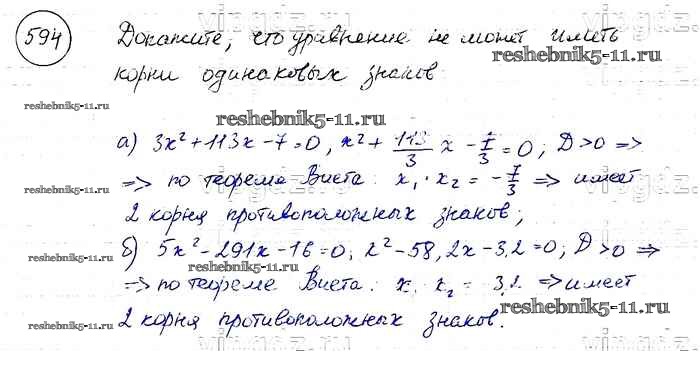 594 Докажите, что уравнение не может иметь
reshebnik5-11.ru
корни одинаковых знаков
reshebnik5-11.ru
reshebnik5-11.ru
а) 3x² + 113x - 7 = 0, x² + 113/3 x - 7/3 = 0; D > 0 =>
=> по теореме Виета: x₁ · x₂ = - 7/3 => имеет
reshebnik5-11.ru
2 корня противоположных знаков;
б) 5x² - 291x - 16 = 0; x² - 58,2x - 3,2 = 0; D > 0 =>
reshebnik5-11.ru
reshebnik5-11.ru
=> по теореме Виета: x₁ x₂ = 3,2 => имеет
reshebnik5-11.ru
2 корня противоположных знаков.
reshebnik5-11.ru